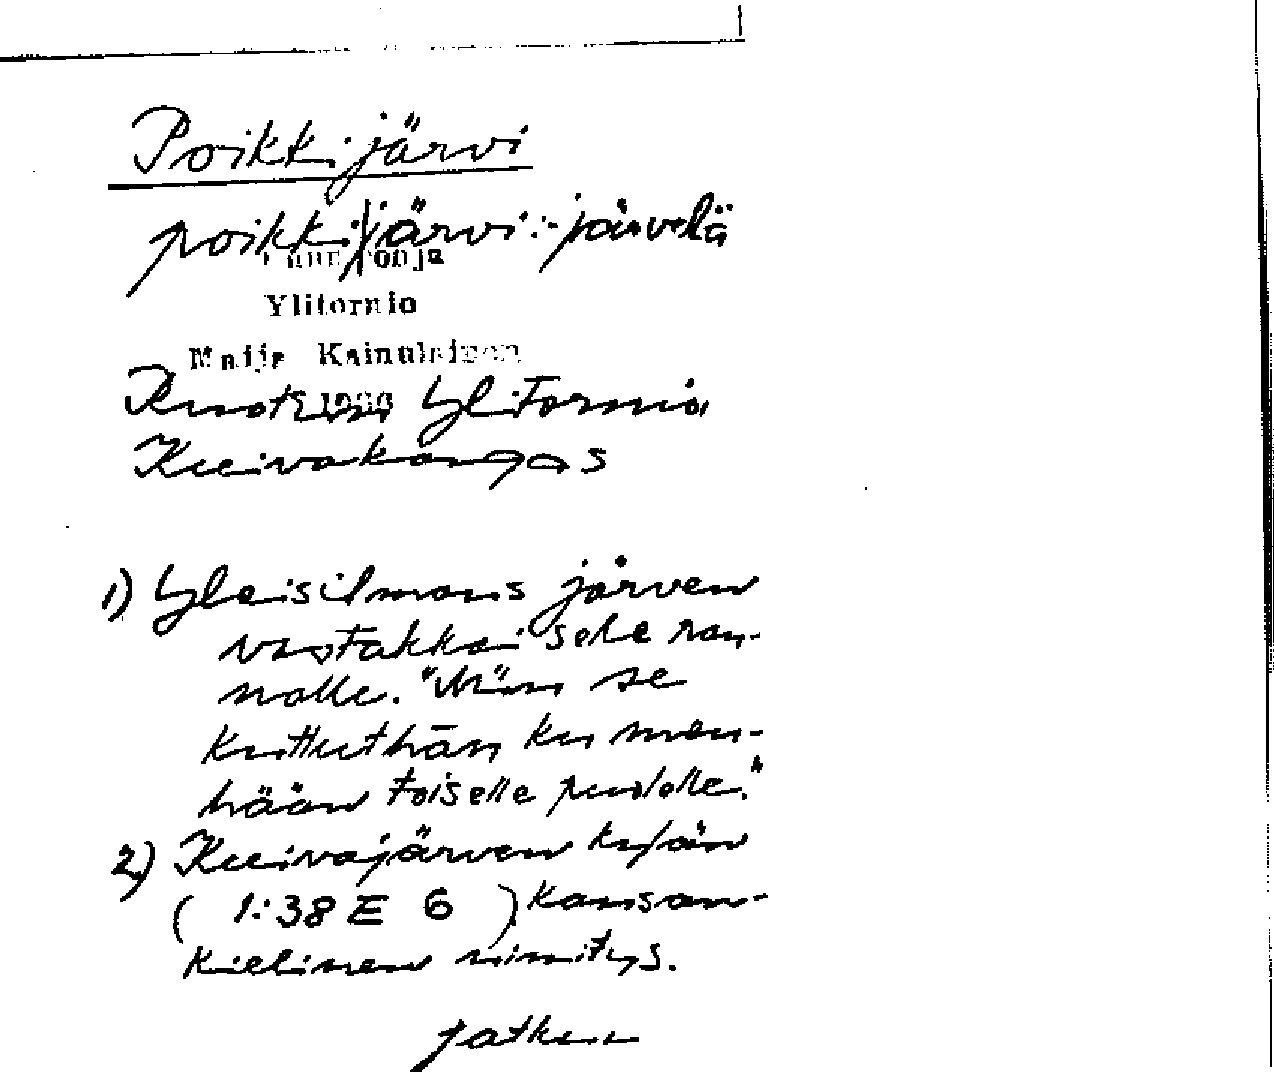 Poikkijärvi
poikki|järvi :- järvelä
Ylitornio
Maija Kainulainen
Ruotsin Ylitornio
Kuivakangas
1) Yleisilmaus järven
vastakkaiselle ran-
nalle. "Niin se
kuttuthān ku men-
hään toiselle puolelle."
2) Kuivajärven kylän
( 1:38 E 6 ) kansan-
kielinen nimitys.
jatkuu